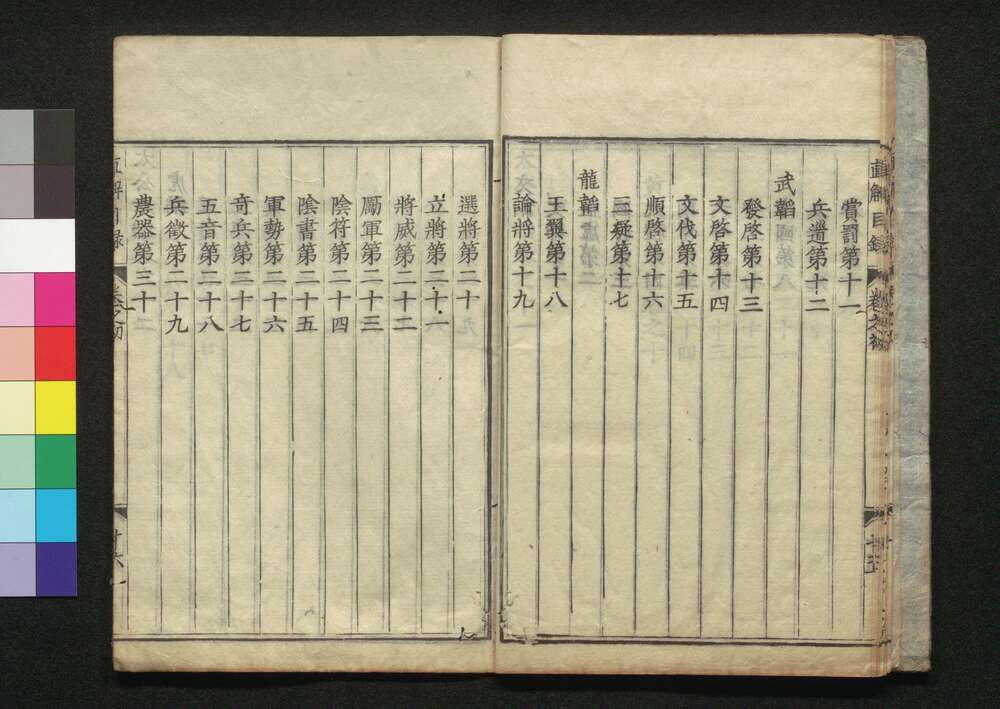 直解目録 卷之初
十五
賞罰第十一
兵道第十二
武韜
發啓第十三
文啓第十四
文伐第十五
順啓第十六
三疑第十七
龍韜
王翼第十八
論將第十九
選將第二十
立將第二十一
將威第二十二
勵軍第二十三
陰符第二十四
陰書第二十五
軍勢第二十六
奇兵第二十七
五音第二十八
兵徵第二十九
農器第三十
直解目録